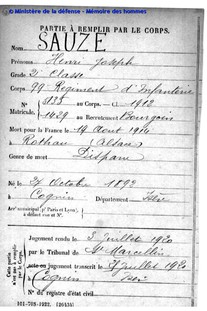 © Ministère de la défense - Mémoire des hommes
PARTIE À REMPLIR PAR LE CORPS.
Nom SAUZE
Prénoms Henri Joseph
Grade 2e Classe
Corps 99 Régiment d'Infanterie
N° 835 au Corps. — Cl 1912
Matricule. 1429 au Recrutement Bourgoin
Mort pour la France le 19 Août 1914
à Rothau (Alsace)
Genre de mort Disparu
Né le 27 Octobre 1892
à Cognin Département Isère
Arr' municipal (p' Paris et Lyon),
à défaut rue et N°.
Cette partie n'est pas à remplir par le Corps.
Jugement rendu le 2 Juillet 1920
par le Tribunal de St Marcellin
acte ou jugement transcrit le juillet 1920
à Cognin Isère
N° du registre d'état civil